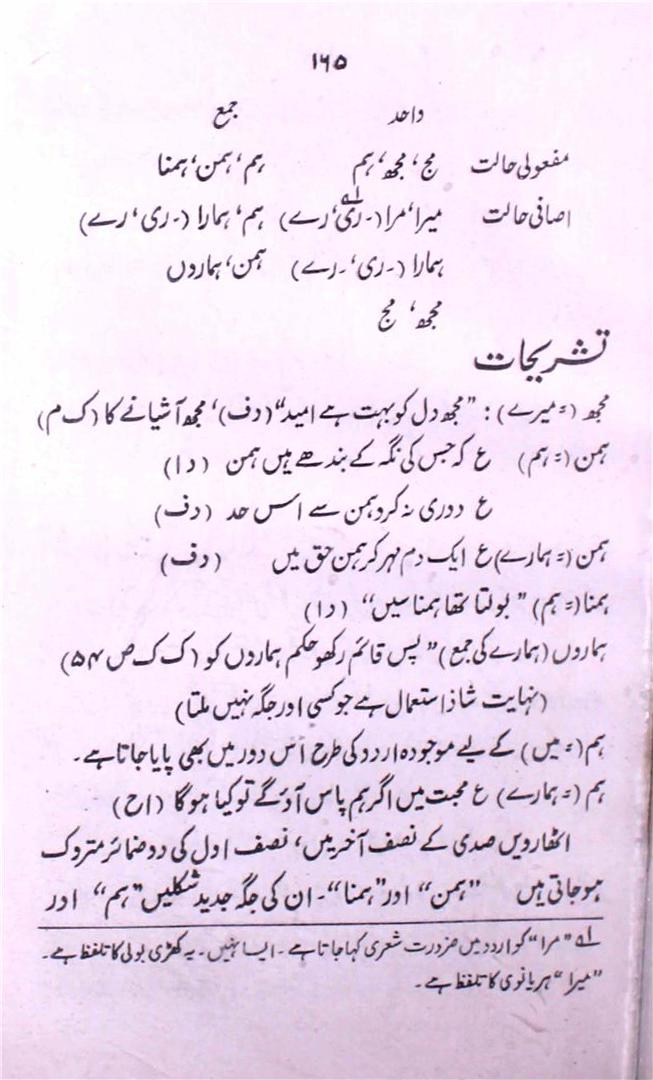 ۱۶۵
واحد جمع
مفعولی حالت مج، مجھ، ہم ہم، ہمن، ہمنا
اضافی حالت میرا، مرا (۔ ری، رے)؂۱ ہم، ہمارا (۔ ری، رے)
ہمارا (۔ ری، ۔ رے) ہمن، ہماروں
مجھ، مج
تشریحات
مجھ (= میرے): "مجھ دل کو بہت ہے امید" (دف)، مجھ آشیانے کا (ک م)
ہمن (= ہم) ع کہ جس کی نگہ کے بندھے ہیں ہمن (د ا)
ع دوری نہ کرو ہمن سے اس حد (دف)
ہمن (= ہمارے) ع ایک دم مہر کر ہمن حق میں (دف)
ہمنا (= ہم) "بولتا تھا ہمنا سیں" (د ا)
ہماروں (ہمارے کی جمع) "پس قائم رکھو حکم ہماروں کو (ک ک ص ۵۴)
(نہایت شاذ استعمال ہے جو کسی اور جگہ نہیں ملتا)
ہم (= میں) کے لیے موجودہ اردو کی طرح اس دور میں بھی پایا جاتا ہے۔
ہم (= ہمارے) ع محبت میں اگر ہم پاس آؤگے تو کیا ہوگا (ا ح)
اٹھارویں صدی کے نصف آخر میں، نصف اول کی دو ضمائر متروک
ہو جاتی ہیں "ہمن" اور "ہمنا"۔ ان کی جگہ جدید شکلیں "ہم" اور
؂۱ "مرا" کو اردو میں ضرورت شعری کہا جاتا ہے۔ ایسا نہیں۔ یہ کھڑی بولی کا تلفظ ہے۔
"میرا" ہریانوی کا تلفظ ہے۔